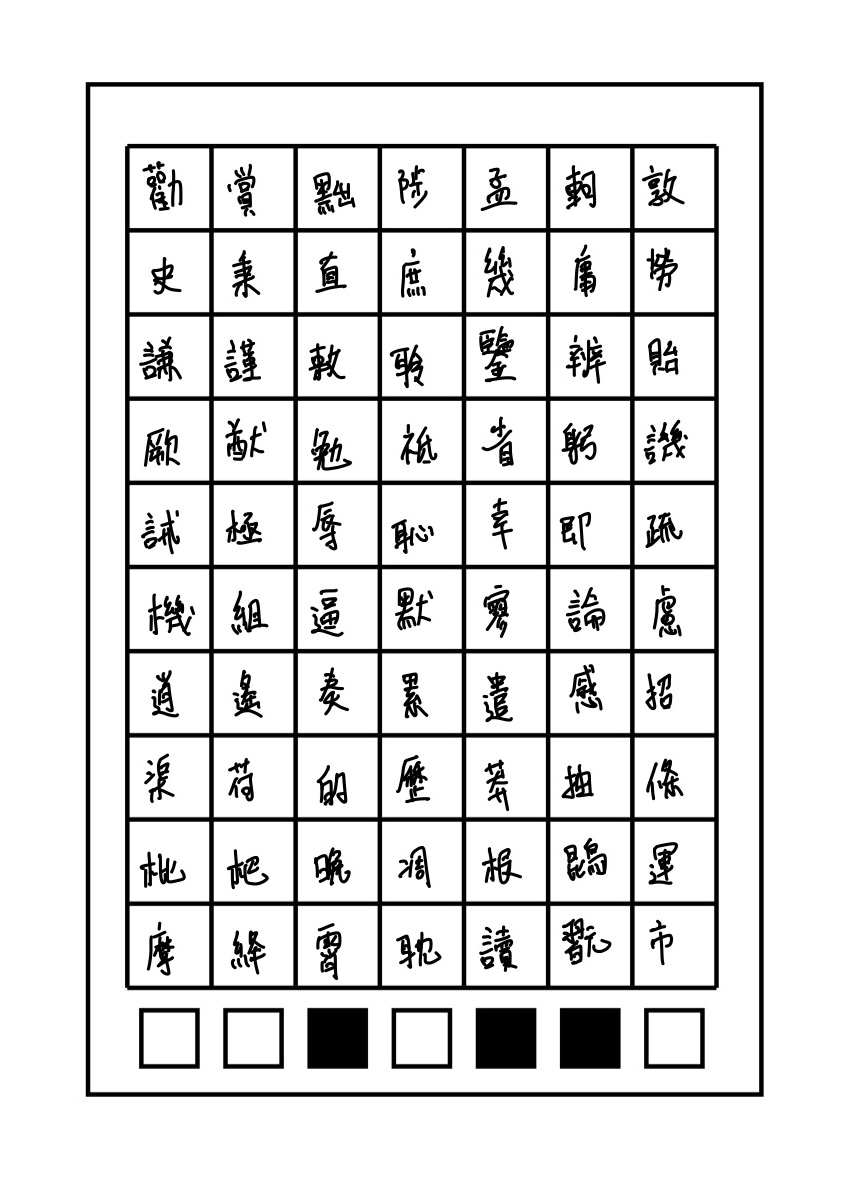 勸賞黜陟孟軻敦
史秉直庶幾庸勞
謙謹敕聆鑒辨貽
厥猷勉祗省躬譏
誡極辱恥幸即疏
機組逼默寥論慮
逍遙奏累遣感招
渠荷的歷莽抽條
枇杷晚凋根鵾運
摩絳霄耽讀翫市